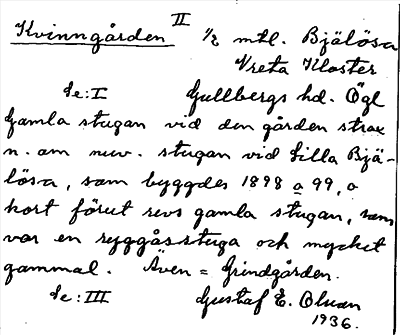 Kvinngården II 1/2 mtl. Bjälösa
Vreta Kloster
Se: I Gullbergs hd. Ögl
Gamla stugan vid den gården strax
n. om nuv. stugan vid Lilla Bjä-
lösa, som byggdes 1898 a 99, o
kort förut revs gamla stugan, som
var en ryggåsstuga och mycket
gammal. Även = Grindgården.
Se: III Gustaf E. Olsson
1936.